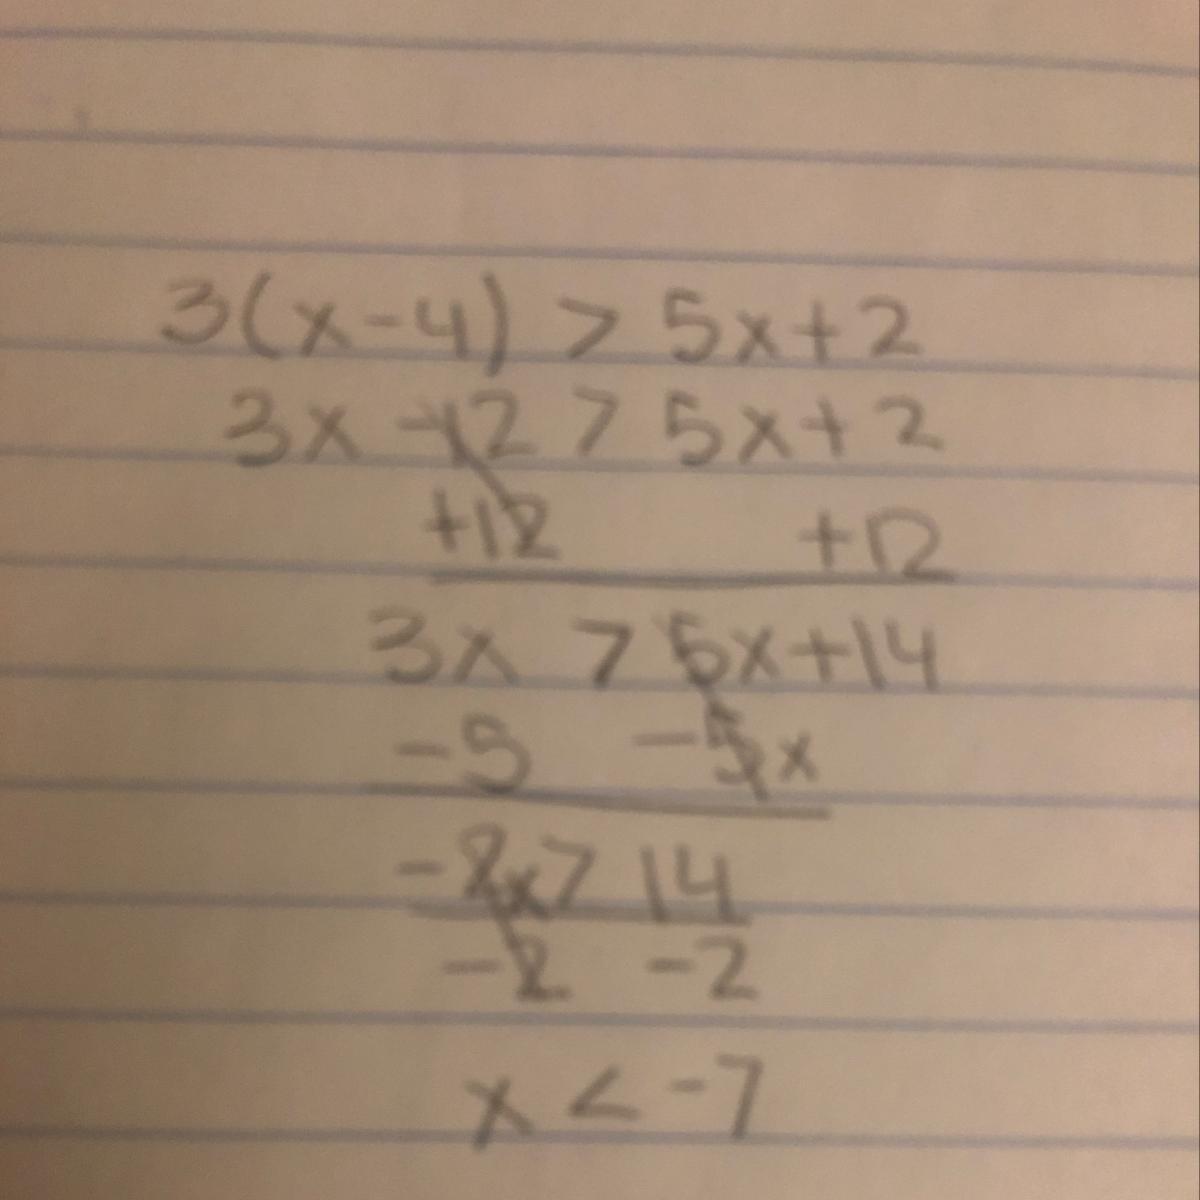 3(x-4) > 5x+2
3x -12 > 5x+2
+12 +12
3x > 5x+14
-5 -5x
-2x > 14
-2 -2
x < -7